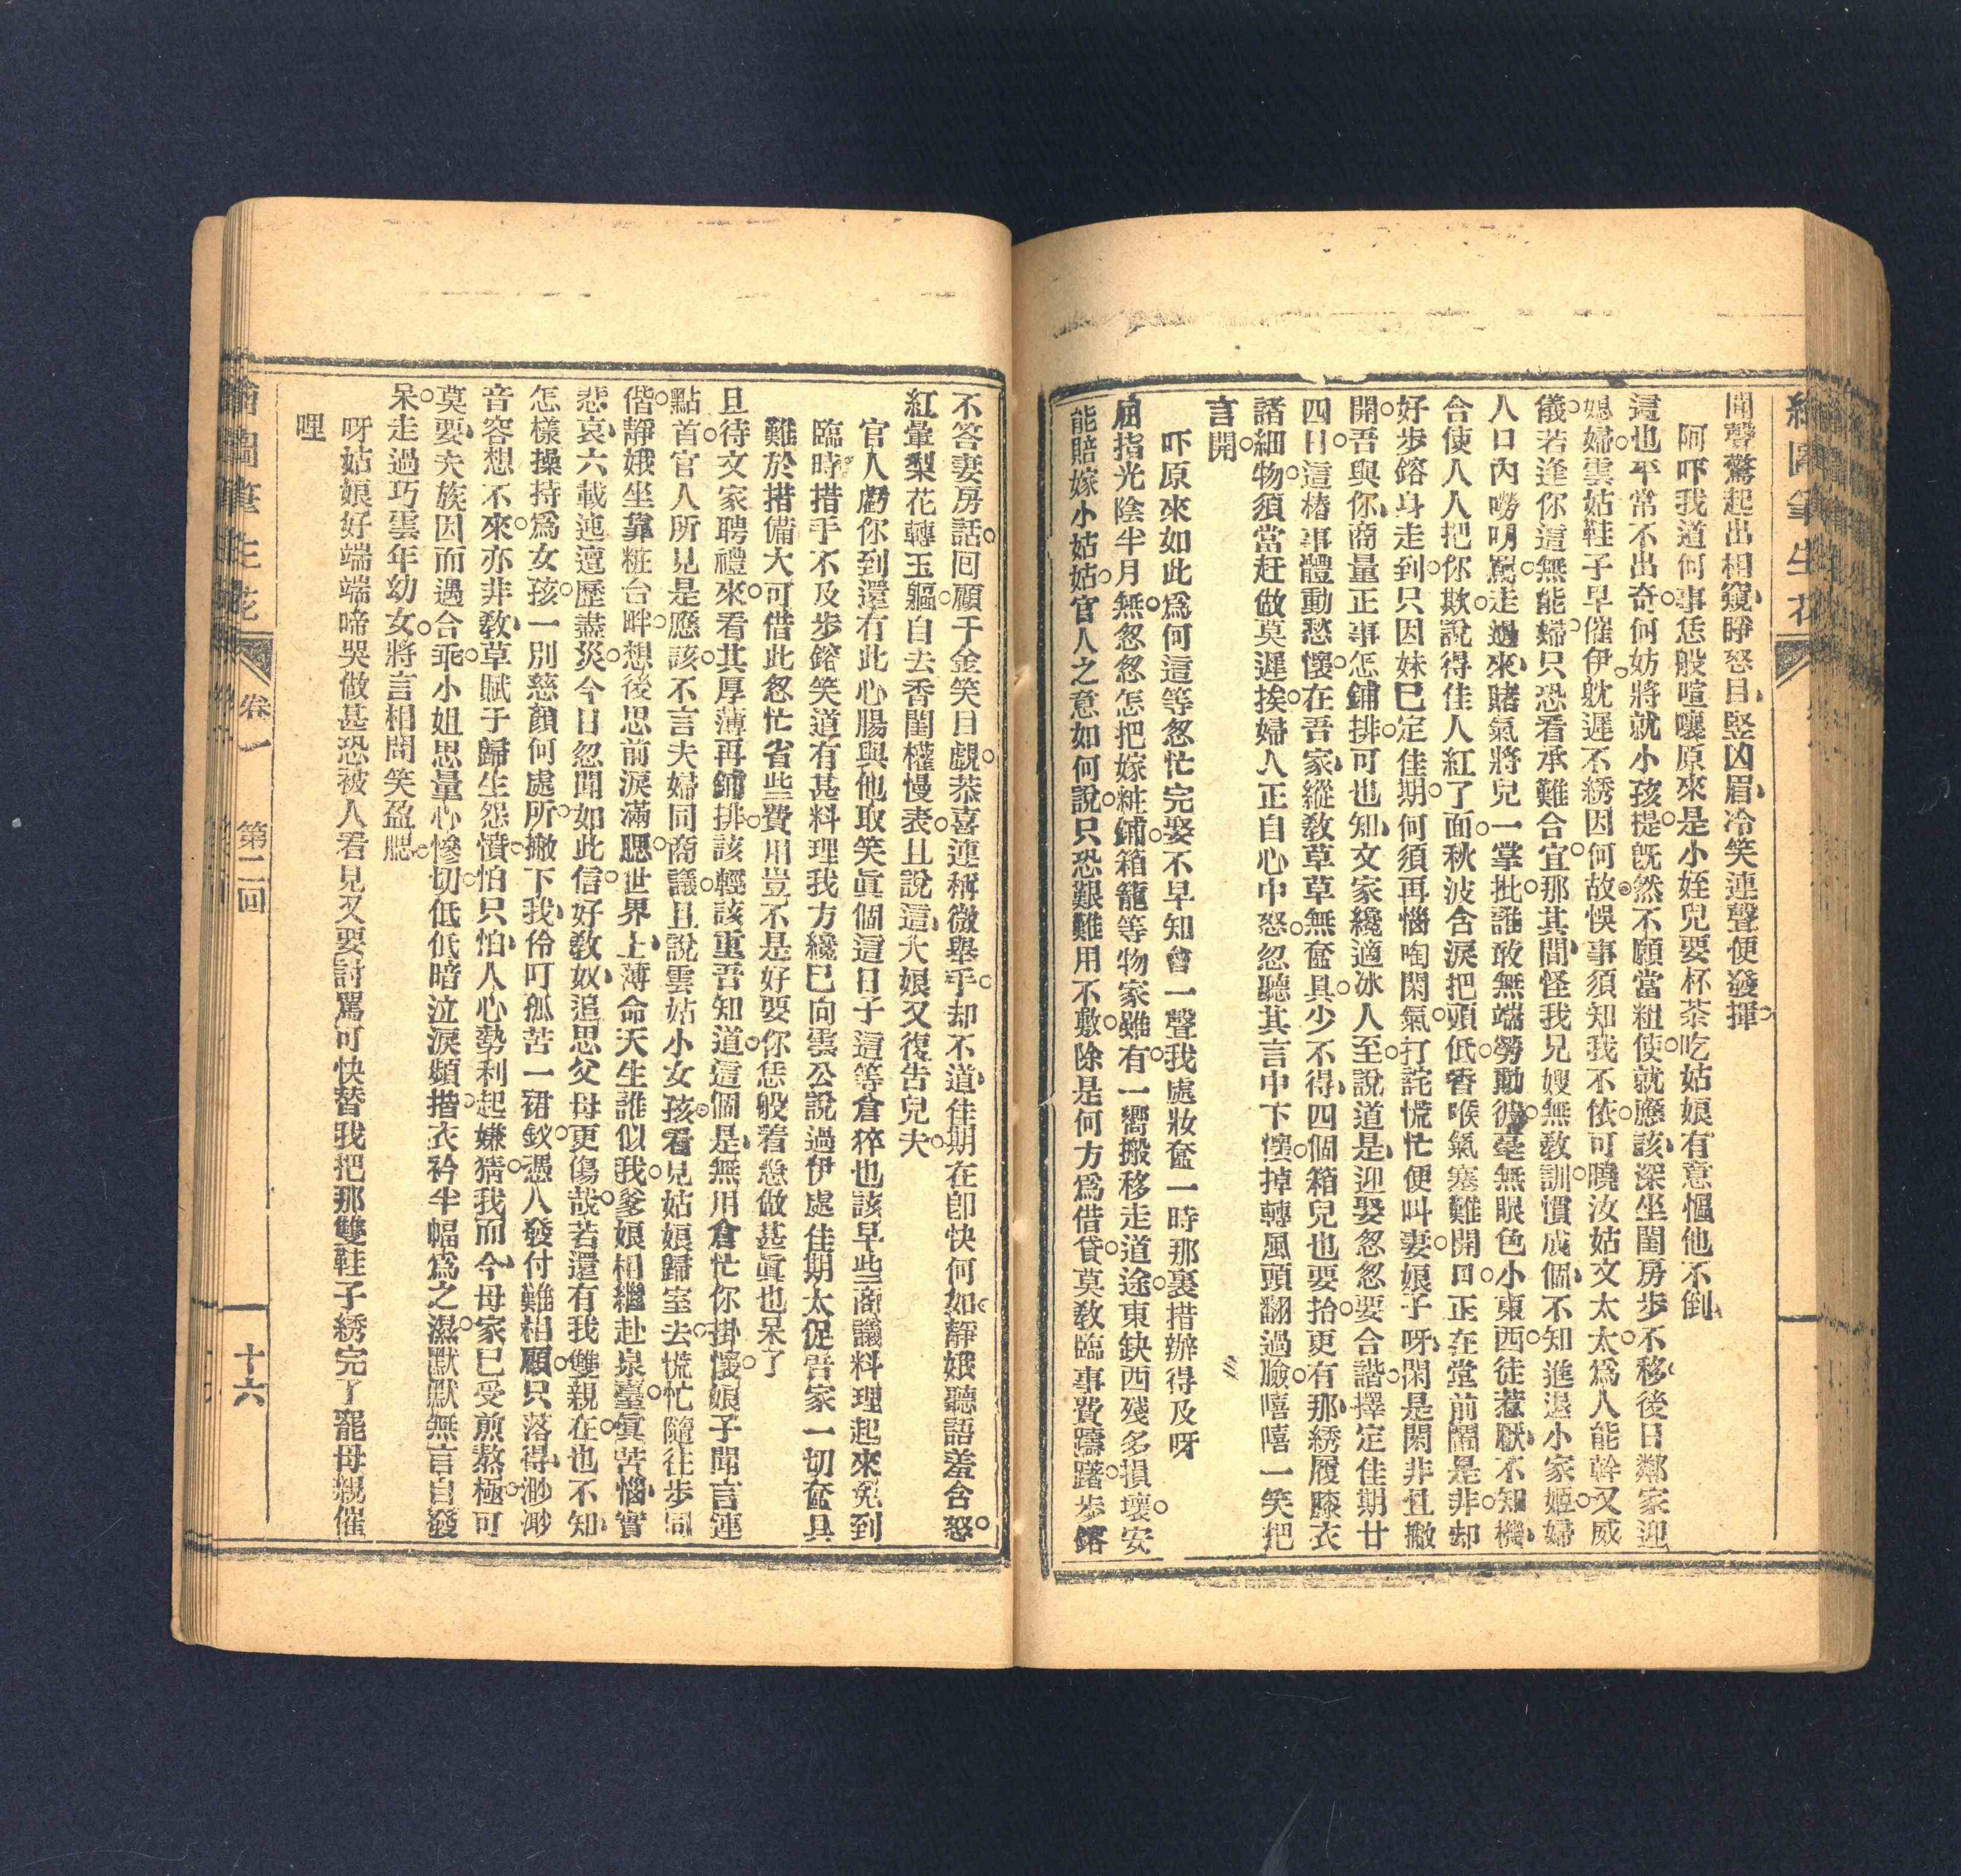 繪圖筆生花
聞聲驚起出相窺睜怒目竪凶眉冷笑連聲便發揮
阿吓我道何事恁般喧嚷原來是小姪兒要杯茶吃姑娘有意慪他不倒
這也平常不出奇何妨將就小孩提旣然不願當粗使就應該深坐閨房步不移後日鄰家迎
媳婦雲姑鞋子早催伊躭遲不綉因何故悞事須知我不依可曉汝姑文太太爲人能幹又威
儀若逢你這無能婦只恐看承難合宜那其間怪我兄嫂無教訓慣成個不知進退小家姬婦
人口內嘮叨罵走過來賭氣將兒一掌批誰敢無端勞動彼毫無眼色小東西徒惹厭不知機
合使人人把你欺說得佳人紅了面秋波含淚把頭低香喉氣塞難開口正在堂前鬧是非却
好步鎔身走到只因妹已定佳期何須再惱啕閑氣打詫慌忙便叫妻娘子呀閑是閑非且撇
開吾與你商量正事怎鋪排可也知文家纔適冰人至說道是迎娶怱怱要合諧擇定佳期廿
四日這樁事體動愁懷在吾家縱教草草無奩具少不得四個箱兒也要抬更有那綉履膝衣
諸細物須當赶做莫遲挨婦人正自心中怒忽聽其言中下懷掉轉風頭翻過臉嘻嘻一笑把
言開
吓原來如此爲何這等怱忙完娶不早知會一聲我處妝奩一時那裏措辦得及呀
屈指光陰半月無怱怱怎把嫁粧鋪箱籠等物家雖有一嚮搬移走道途東缺西殘多損壞安
能賠嫁小姑姑官人之意如何說只恐艱難用不敷除是何方爲借貸莫教臨事費躊躇步鎔
不答妻房話回顧千金笑目覷恭喜連稱微舉手却不道佳期在卽快何如靜娥聽語羞含怒
紅暈梨花轉玉軀自去香閨權慢表且說這大娘又復告兒夫
官人虧你到還有此心腸與他取笑眞個這日子這等倉猝也該早些商議料理起來免到
臨時措手不及步鎔笑道有甚料理我方纔已向雲公說過伊處佳期太促吾家一切奩具
難於措備大可借此怱忙省些費用豈不是好要你恁般着急做甚眞也呆了
且待文家聘禮來看其厚薄再鋪排該輕該重吾知道這個是無用倉忙你掛懷娘子聞言連
點首官人所見是應該不言夫婦同商議且說雲姑小女孩看見姑娘歸室去慌忙隨往步同
偕靜娥坐靠粧台畔想後思前淚滿腮世界上薄命天生誰似我爹娘相繼赴泉臺眞苦惱實
悲哀六載迍邅歷盡災今日忽聞如此信好教奴追思父母更傷哉若還有我雙親在也不知
怎樣操持爲女孩一別慈顏何處所撇下我伶叮孤苦一裙釵憑人發付難相顧只落得渺渺
音容想不來亦非教草賦于歸生怨憤怕只怕人心勢利起嫌猜我而今母家已受煎熬極可
莫要夫族因而遇合乖小姐思量心慘切低低暗泣淚頻揩衣衿半幅爲之濕默默無言自發
呆走過巧雲年幼女將言相問笑盈腮
呀姑娘好端端啼哭做甚恐被人看見又要討罵可快替我把那雙鞋子綉完了罷母親催
哩
繪圖筆生花
卷一
第二回
十六